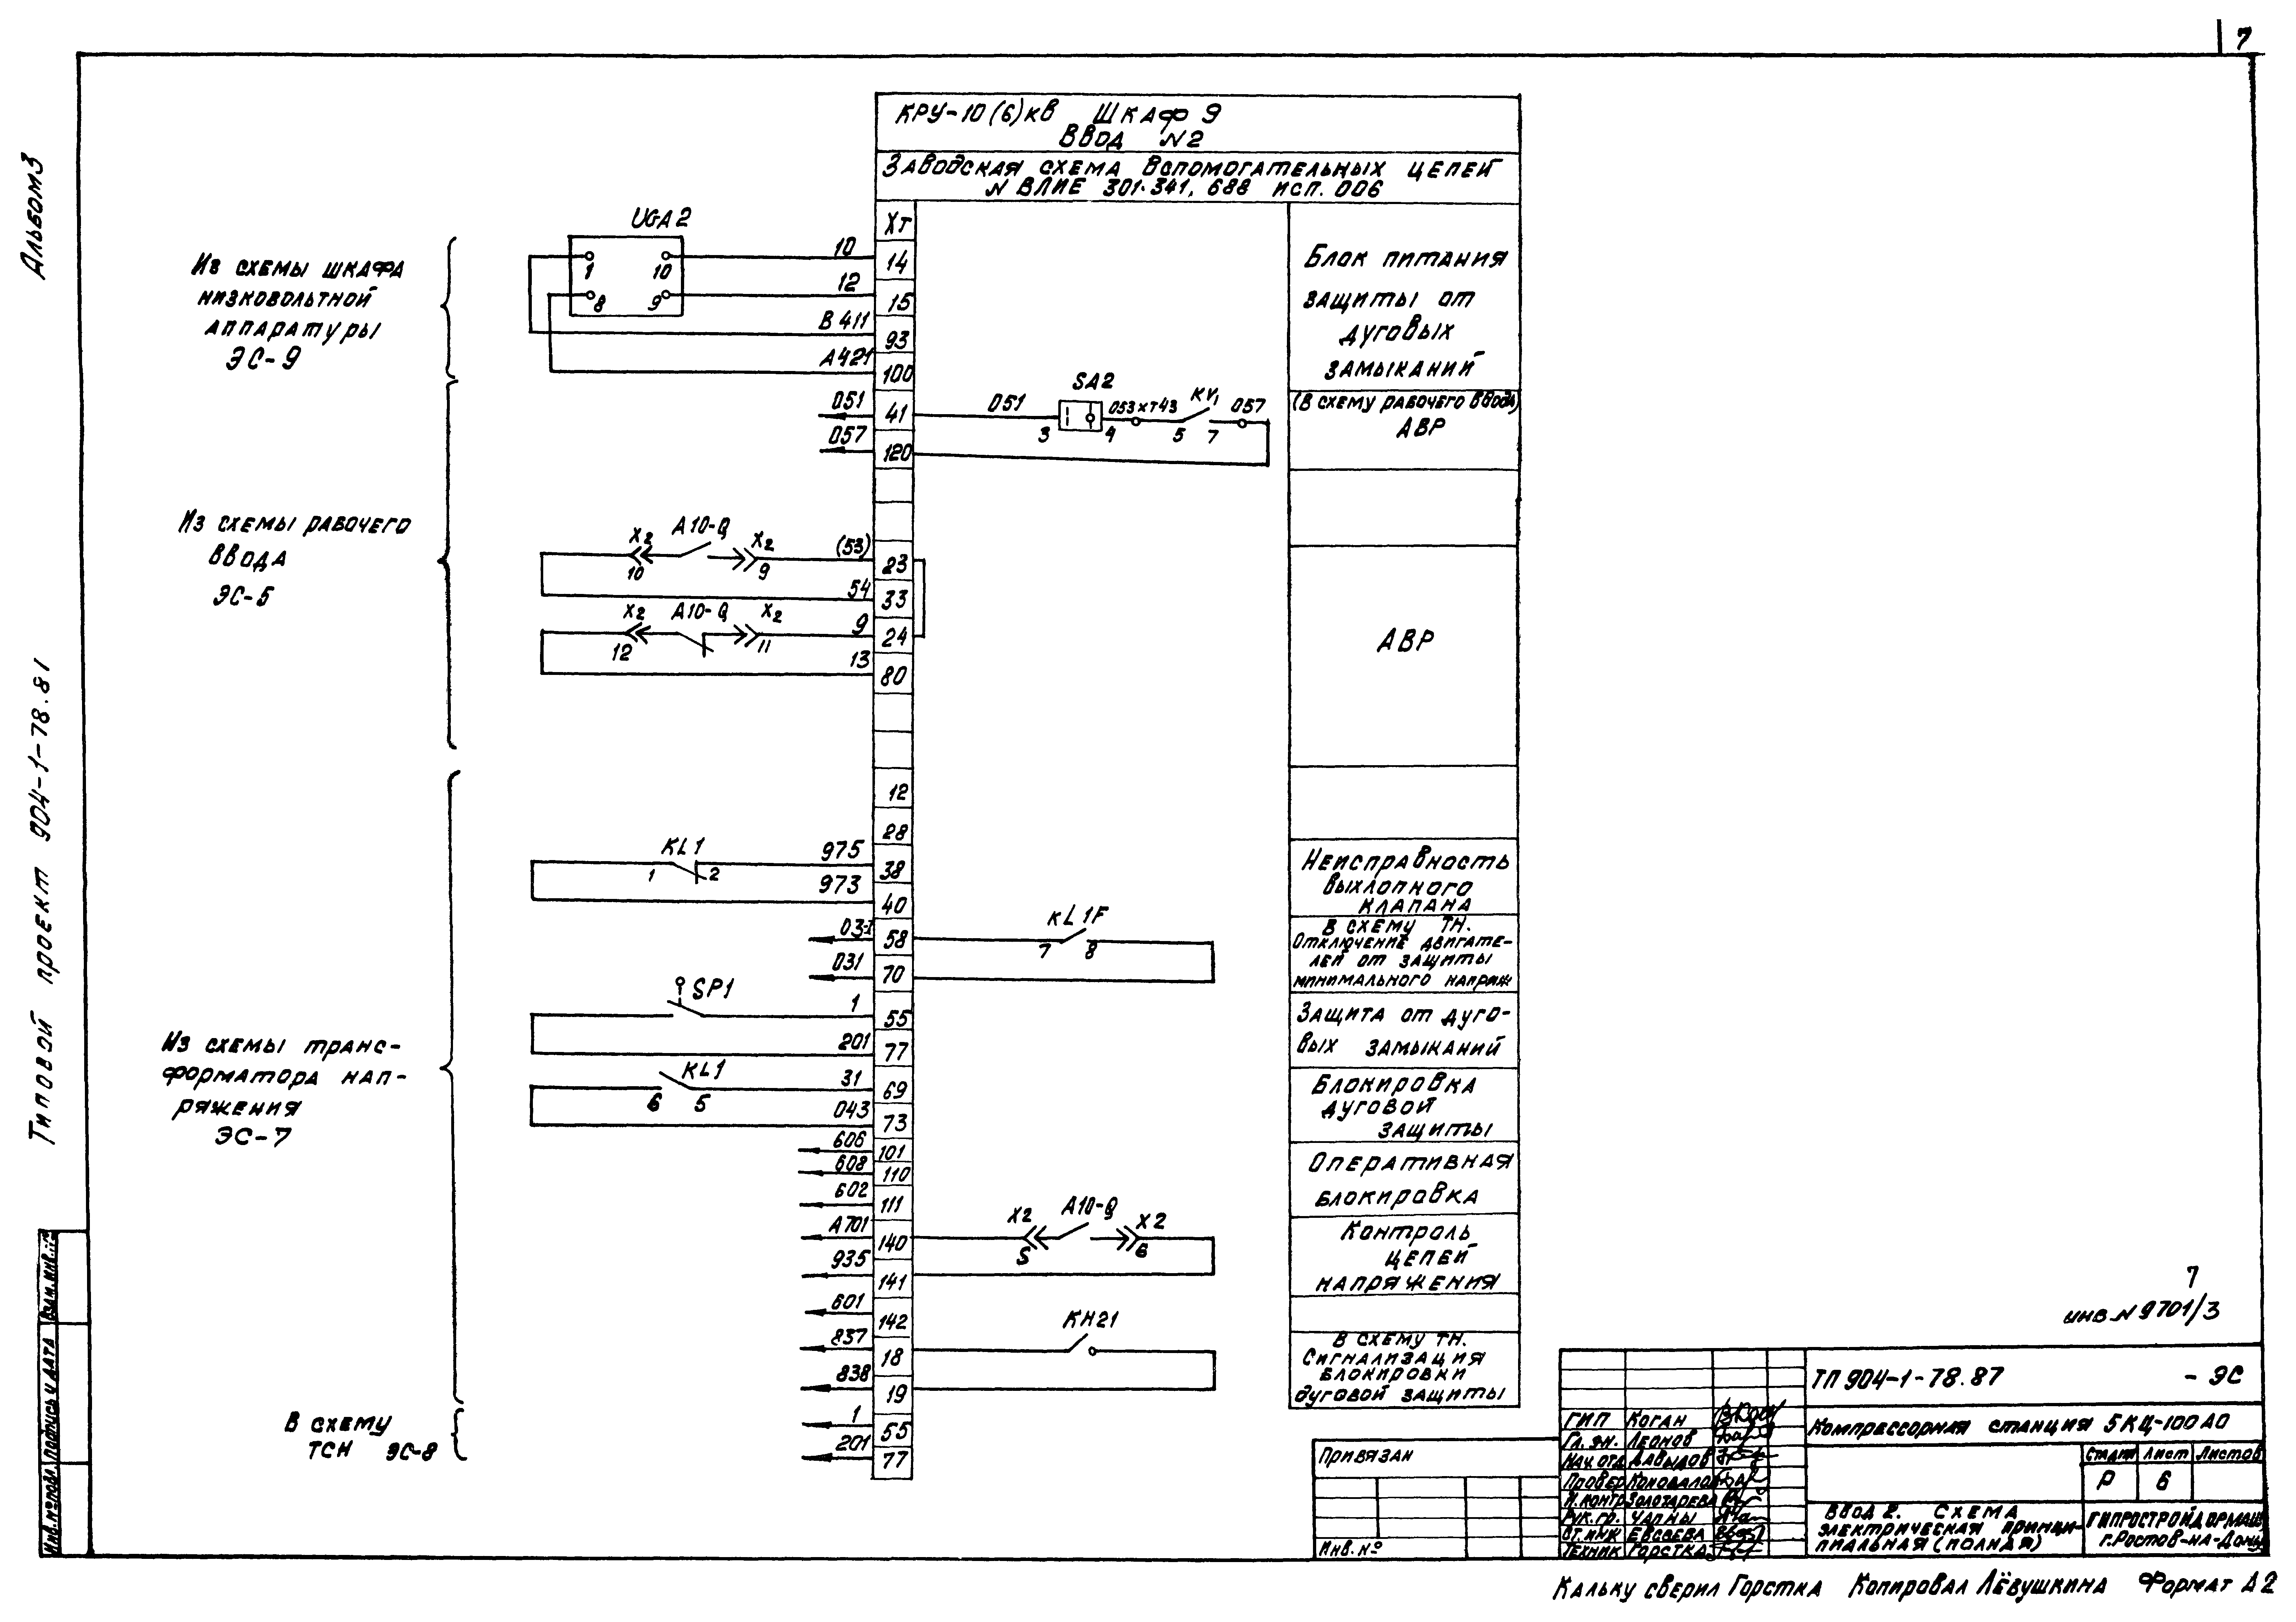 7
Альбом 3
Типовой проект 904-1-78.81
КРУ-10(6)кВ Шкаф 9
Ввод N2
Заводская схема вспомогательных цепей
N ВЛИЕ 301.341, 688 исп. 006
Из схемы шкафа
низковольтной
аппаратуры
ЭС-9
Из схемы рабочего
ввода
ЭС-5
Из схемы транс-
форматора нап-
ряжения
ЭС-7
В схему
ТСН ЭС-8
UGA2
1 10
8 9
10
12
В411
А421
051
057
X2 А10-Q X2
10 9
(53)
54
X2 А10-Q X2
12 11
9
13
KL1
1 2
975
973
031
SP1
1
201
KL1
6 5
31
043
606
608
602
А701
935
601
837
838
1
201
ХТ
14
15
93
100
41
120
23
33
24
80
12
28
38
40
58
70
55
77
69
73
101
110
111
140
141
142
18
19
55
77
SA2
051 053 ХТ43 KV1 057
3 4 5 7
KL1F
7 8
X2 А10-Q X2
5 6
KH21
Блок питания
защиты от
дуговых
замыканий
(В схему рабочего ввода)
АВР
АВР
Неисправность
выхлопного
клапана
В схему ТН.
Отключение двигате-
лей от защиты
минимального напряж
Защита от дуго-
вых замыканий
Блокировка
дуговой
защиты
Оперативная
блокировка
Контроль
цепей
напряжения
В схему ТН.
Сигнализация
блокировки
дуговой защиты
7
инв. N 9701/3
ТП 904-1-78.87 - ЭС
Компрессорная станция 5КЦ-100А0
Стадия Лист Листов
Р 6
Ввод 2. Схема
электрическая принци-
пиальная (полная)
ГИПРОСТРОЙДОРМАШ
г. Ростов-на-Дону
ГИП Коган
Гл. эн. Леонов
Нач. отд Давыдов
Провер Коновалов
Н. контр Золотарева
Рук. гр. Чапны
Ст. инж Евсеева
Техник Горстка
Привязан
Инв. №
Инв. № подл. Подпись и дата Взам. инв. №
Кальку сверил Горстка Копировал Лёвушкина Формат А2